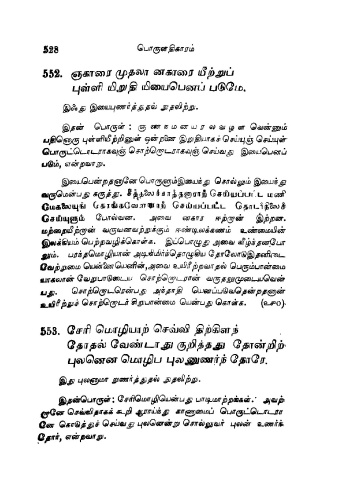 528 பொருளதிகாரம்
552. ஞகாரை முதலா னகாரை யீற்றுப்
புள்ளி யிறுதி யியைபெனப் படுமே.
இஃது இயைபுணர்த்துதல் நுதலிற்று.
இதன் பொருள் : ஞ ண ந ம ன ய ர ல வ ழ ள வென்னும்
பதினொரு புள்ளியீற்றினுள் ஒன்றினை இறுதியாகச் செய்யுஞ் செய்யுள்
பொருட்டொடராகவுஞ் சொற்றொடராகவுஞ் செய்வது இயைபெனப்
படும், என்றவாறு.
இயைபென்றதனானே பொருளுமியைந்து சொல்லும் இயைந்து
வருமென்பது கருத்து. சீத்தலைச்சாத்தனாராற் செய்யப்பட்ட மணி
மேகலையுங் கொங்குவேளாராற் செய்யப்பட்ட தொடர்நிலைச்
செய்யுளும் போல்வன. அவை னகார ஈற்றான் இற்றன.
மற்றையீற்றான் வருவனவற்றுக்கும் ஈண்டிலக்கணம் உண்மையின்
இலக்கியம் பெற்றவழிக்கொள்க. இப்பொழுது அவை வீழ்ந்தனபோ
லும். பரந்தமொழியான் அடிநிமிர்ந்தொழுகிய தோலோடிதனிடை
வேற்றுமை யென்னையெனின், அவை உயிரீற்றவாதல் பெரும்பான்மை
யாகலான் வேறுபாடுடைய சொற்றொடரான் வருதலுமுடையவென்
பது. சொற்றொடரென்பது அந்தாதி யெனப்படுவதென்றதனான்
உயிரீற்றுச் சொற்றொடர் சிறுபான்மை யென்பது கொள்க. (௨௪௦).
553. சேரி மொழியாற் செவ்வி திற்கிளந்
தோதல் வேண்டாது குறித்தது தோன்றிற்
புலனென மொழிப புலனுணர்ந் தோரே.
இது புலனுமா றுணர்த்துதல் நுதலிற்று.
இதன்பொருள் : சேரிமொழியென்பது பாடிமாற்றங்கள். அவற்
றானே செவ்விதாகக் கூறி ஆராய்ந்து காணாமைப் பொருட்டொடரா
னே தொடுத்துச் செய்வது புலனென்று சொல்லுவர் புலன் உணர்ந்
தோர், என்றவாறு.